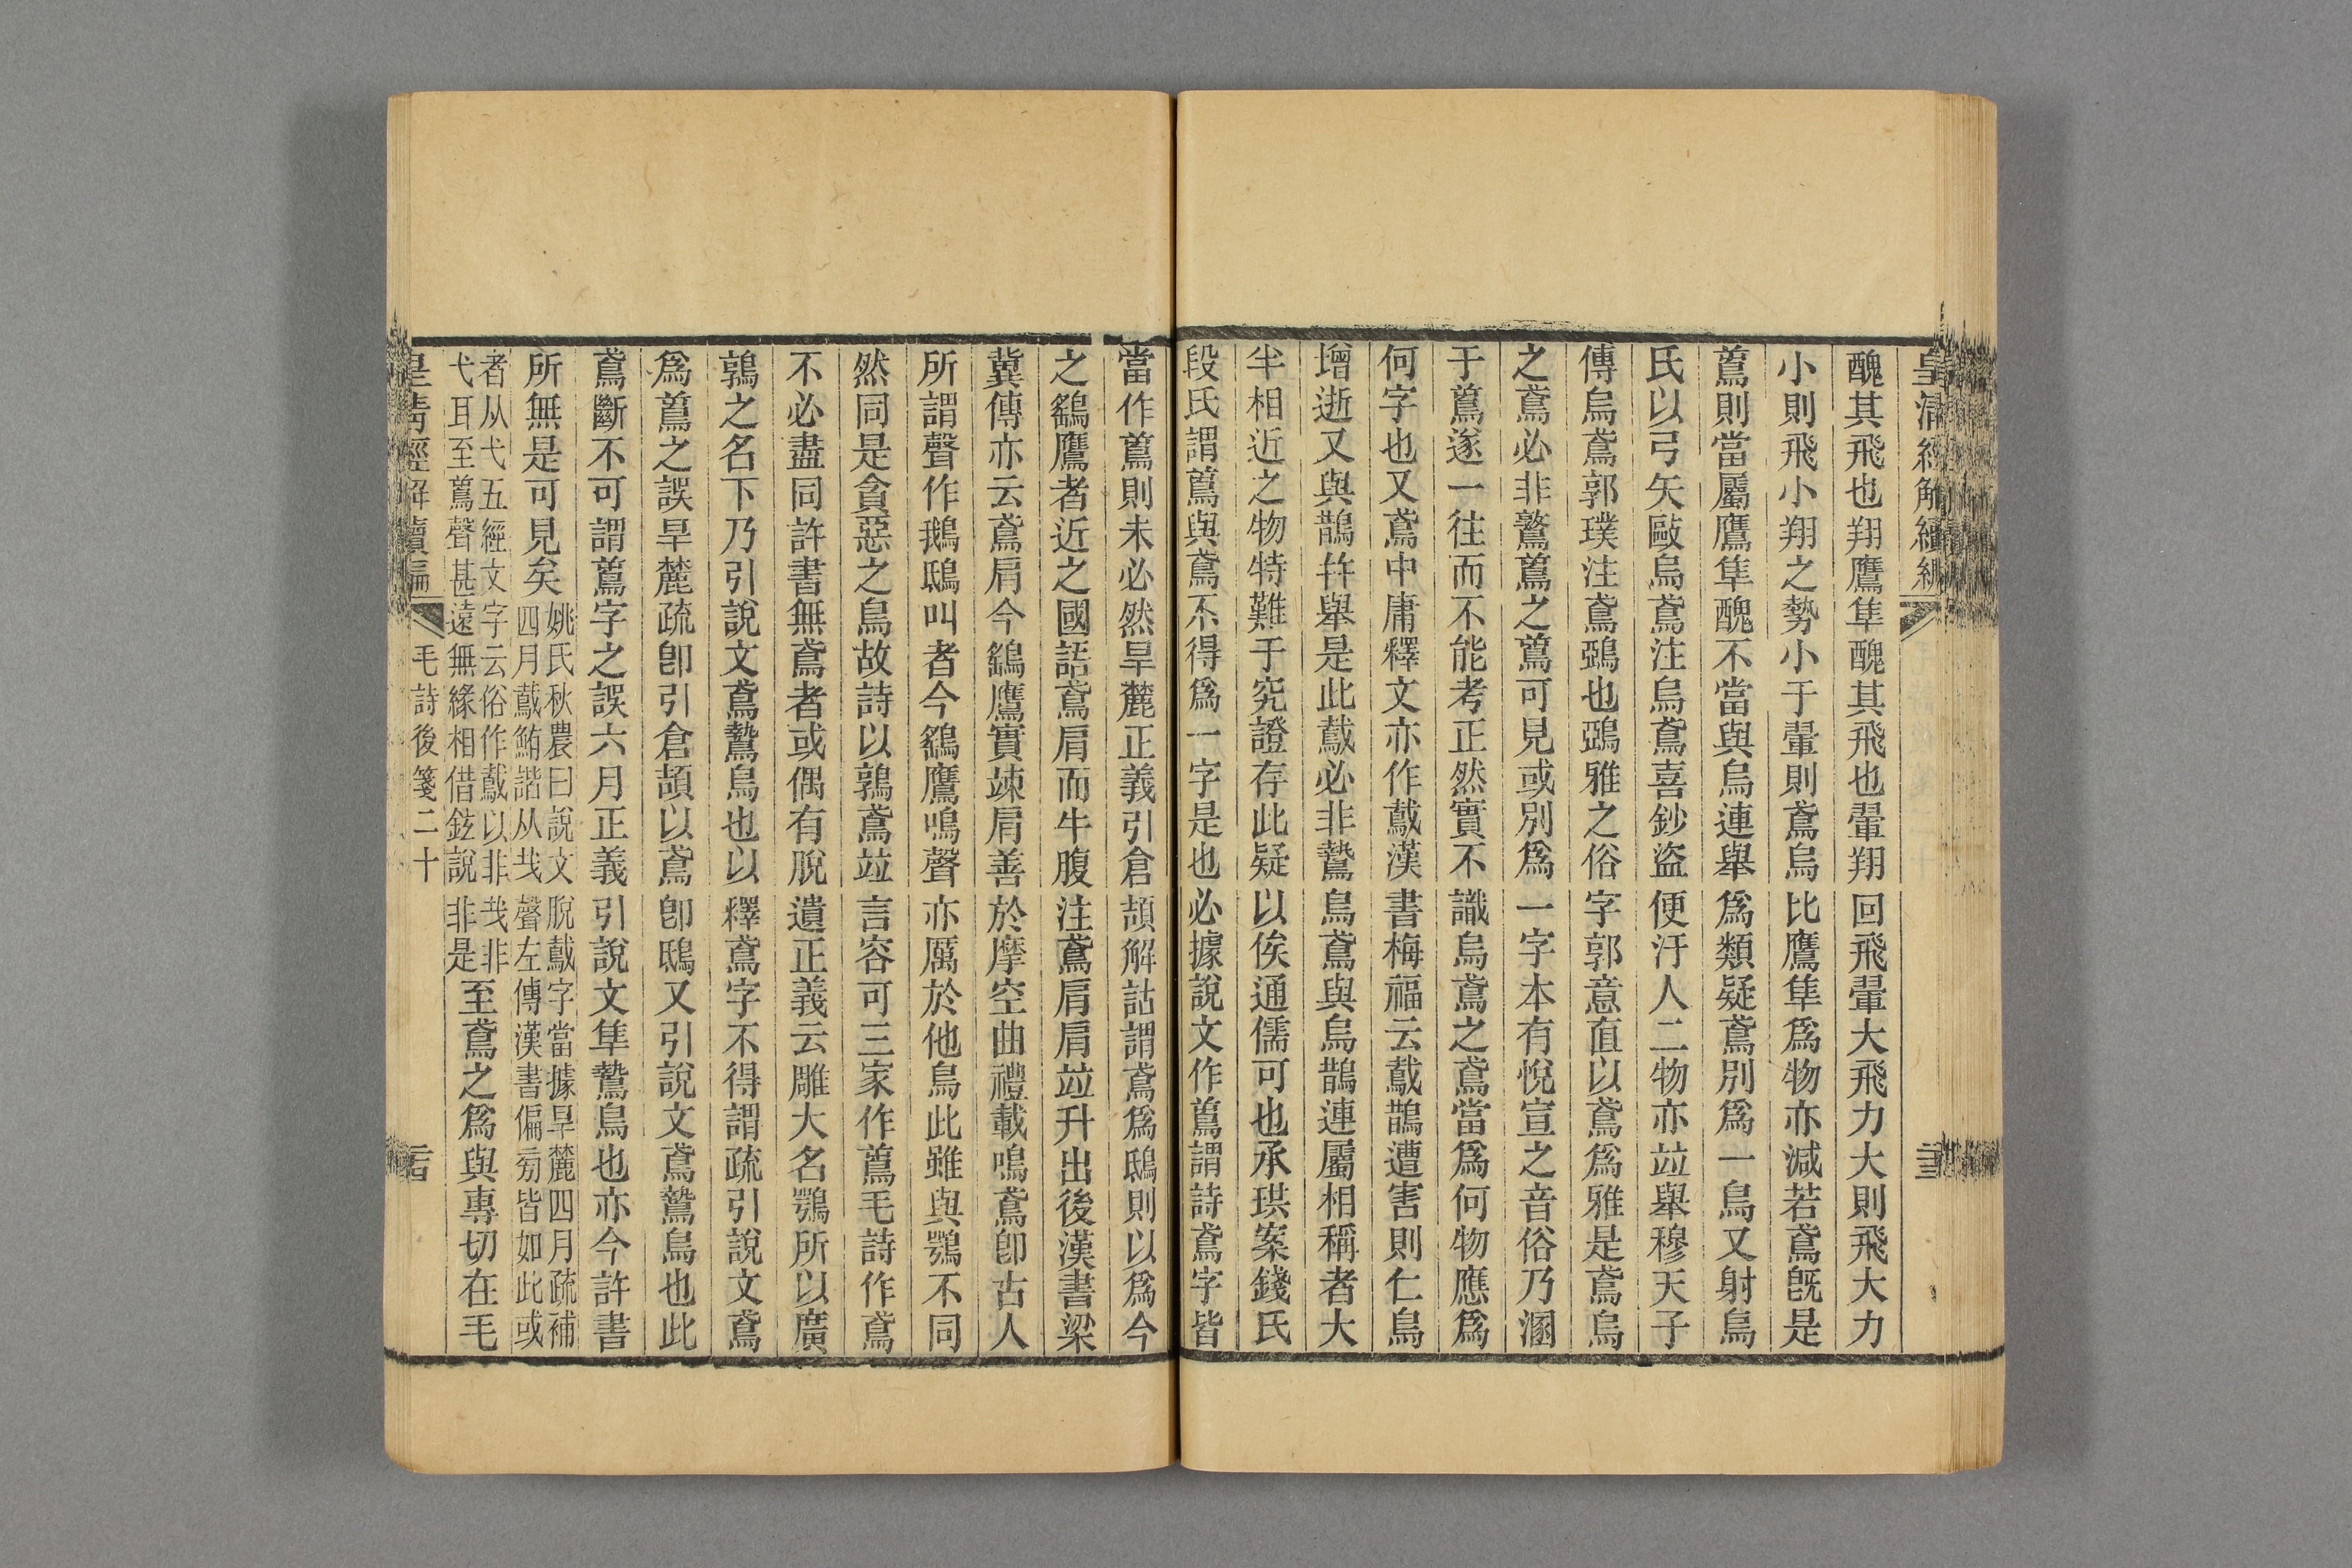 皇清經解續編
醜其飛也翔鷹隼醜其飛也翬翔回飛翬大飛力大則飛大力
小則飛小翔之勢小于翬則鳶烏比鷹隼爲物亦減若鳶旣是
蔿則當屬鷹隼醜不當與烏連舉爲類疑鳶別爲一鳥又射鳥
氏以弓矢毆烏鳶注烏鳶喜鈔盜便汙人二物亦竝舉穆天子
傳烏鳶郭璞注鳶鵶也鵶雅之俗字郭意直以鳶爲雅是鳶烏
之鳶必非鷙蔿之蔿可見或別爲一字本有悅宣之音俗乃溷
于蔿遂一往而不能考正然實不識烏鳶之鳶當爲何物應爲
何字也又鳶中庸釋文亦作䳒漢書梅福云䳒鵲遭害則仁鳥
增逝又與鵲幷舉是此䳒必非鷙鳥鳶與烏鵲連屬相稱者大
半相近之物特難于究證存此疑以俟通儒可也承珙案錢氏
段氏謂蔿與鳶不得爲一字是也必據說文作蔿謂詩鳶字皆
當作蔿則未必然旱麓正義引倉頡解詁謂鳶爲鴟則以爲今
之鷂鷹者近之國語鳶肩而牛腹注鳶肩肩竝升出後漢書梁
冀傳亦云鳶肩今鷂鷹實竦肩善於摩空曲禮載鳴鳶卽古人
所謂聲作鵝鴟叫者今鷂鷹鳴聲亦厲於他鳥此雖與鶚不同
然同是貪惡之鳥故詩以鶉鳶竝言容可三家作蔿毛詩作鳶
不必盡同許書無鳶者或偶有脫遺正義云雕大名鶚所以廣
鶉之名下乃引說文鳶鷙鳥也以釋鳶字不得謂疏引說文鳶
爲蔿之誤旱麓疏卽引倉頡以鳶卽鴟又引說文鳶鷙鳥也此
鳶斷不可謂蔿字之誤六月正義引說文隼鷙鳥也亦今許書
所無是可見矣姚氏秋農曰說文脫䳒字當據旱麓四月疏補
四月䳒鮪諧从𢦏聲左傳漢書偏旁皆如此或
者从弋五經文字云俗作䳒以非𢦏非
弋耳至蔿聲甚遠無緣相借鉉說非是至鳶之爲與專切在毛
皇清經解續編 毛詩後箋二十